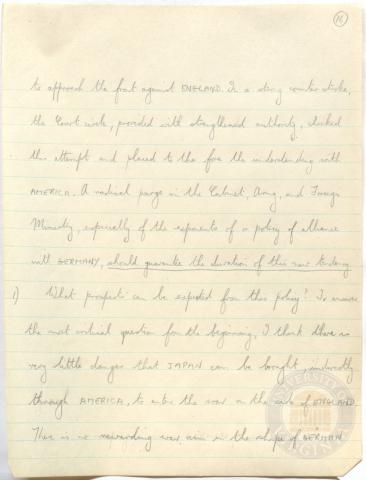 16
to approach the front against ENGLAND. In a strong counter stroke,
the Court circle, provided with strengthened authority, checked
this attempt and placed to the fore the understanding with
AMERICA. A radical purge in the Cabinet, Army, and Foreign
Ministry, especially of the exponents of a policy of alliance
with GERMANY, should guarantee the duration of this new tendency.
1) What prospects can be expected from this policy? To answer
the most critical question from the beginning, I think there is
very little danger that JAPAN can be bought, indirectly
through AMERICA, to enter the war on the side of ENGLAND.
There is no rewarding war aim in the shape of GERMAN